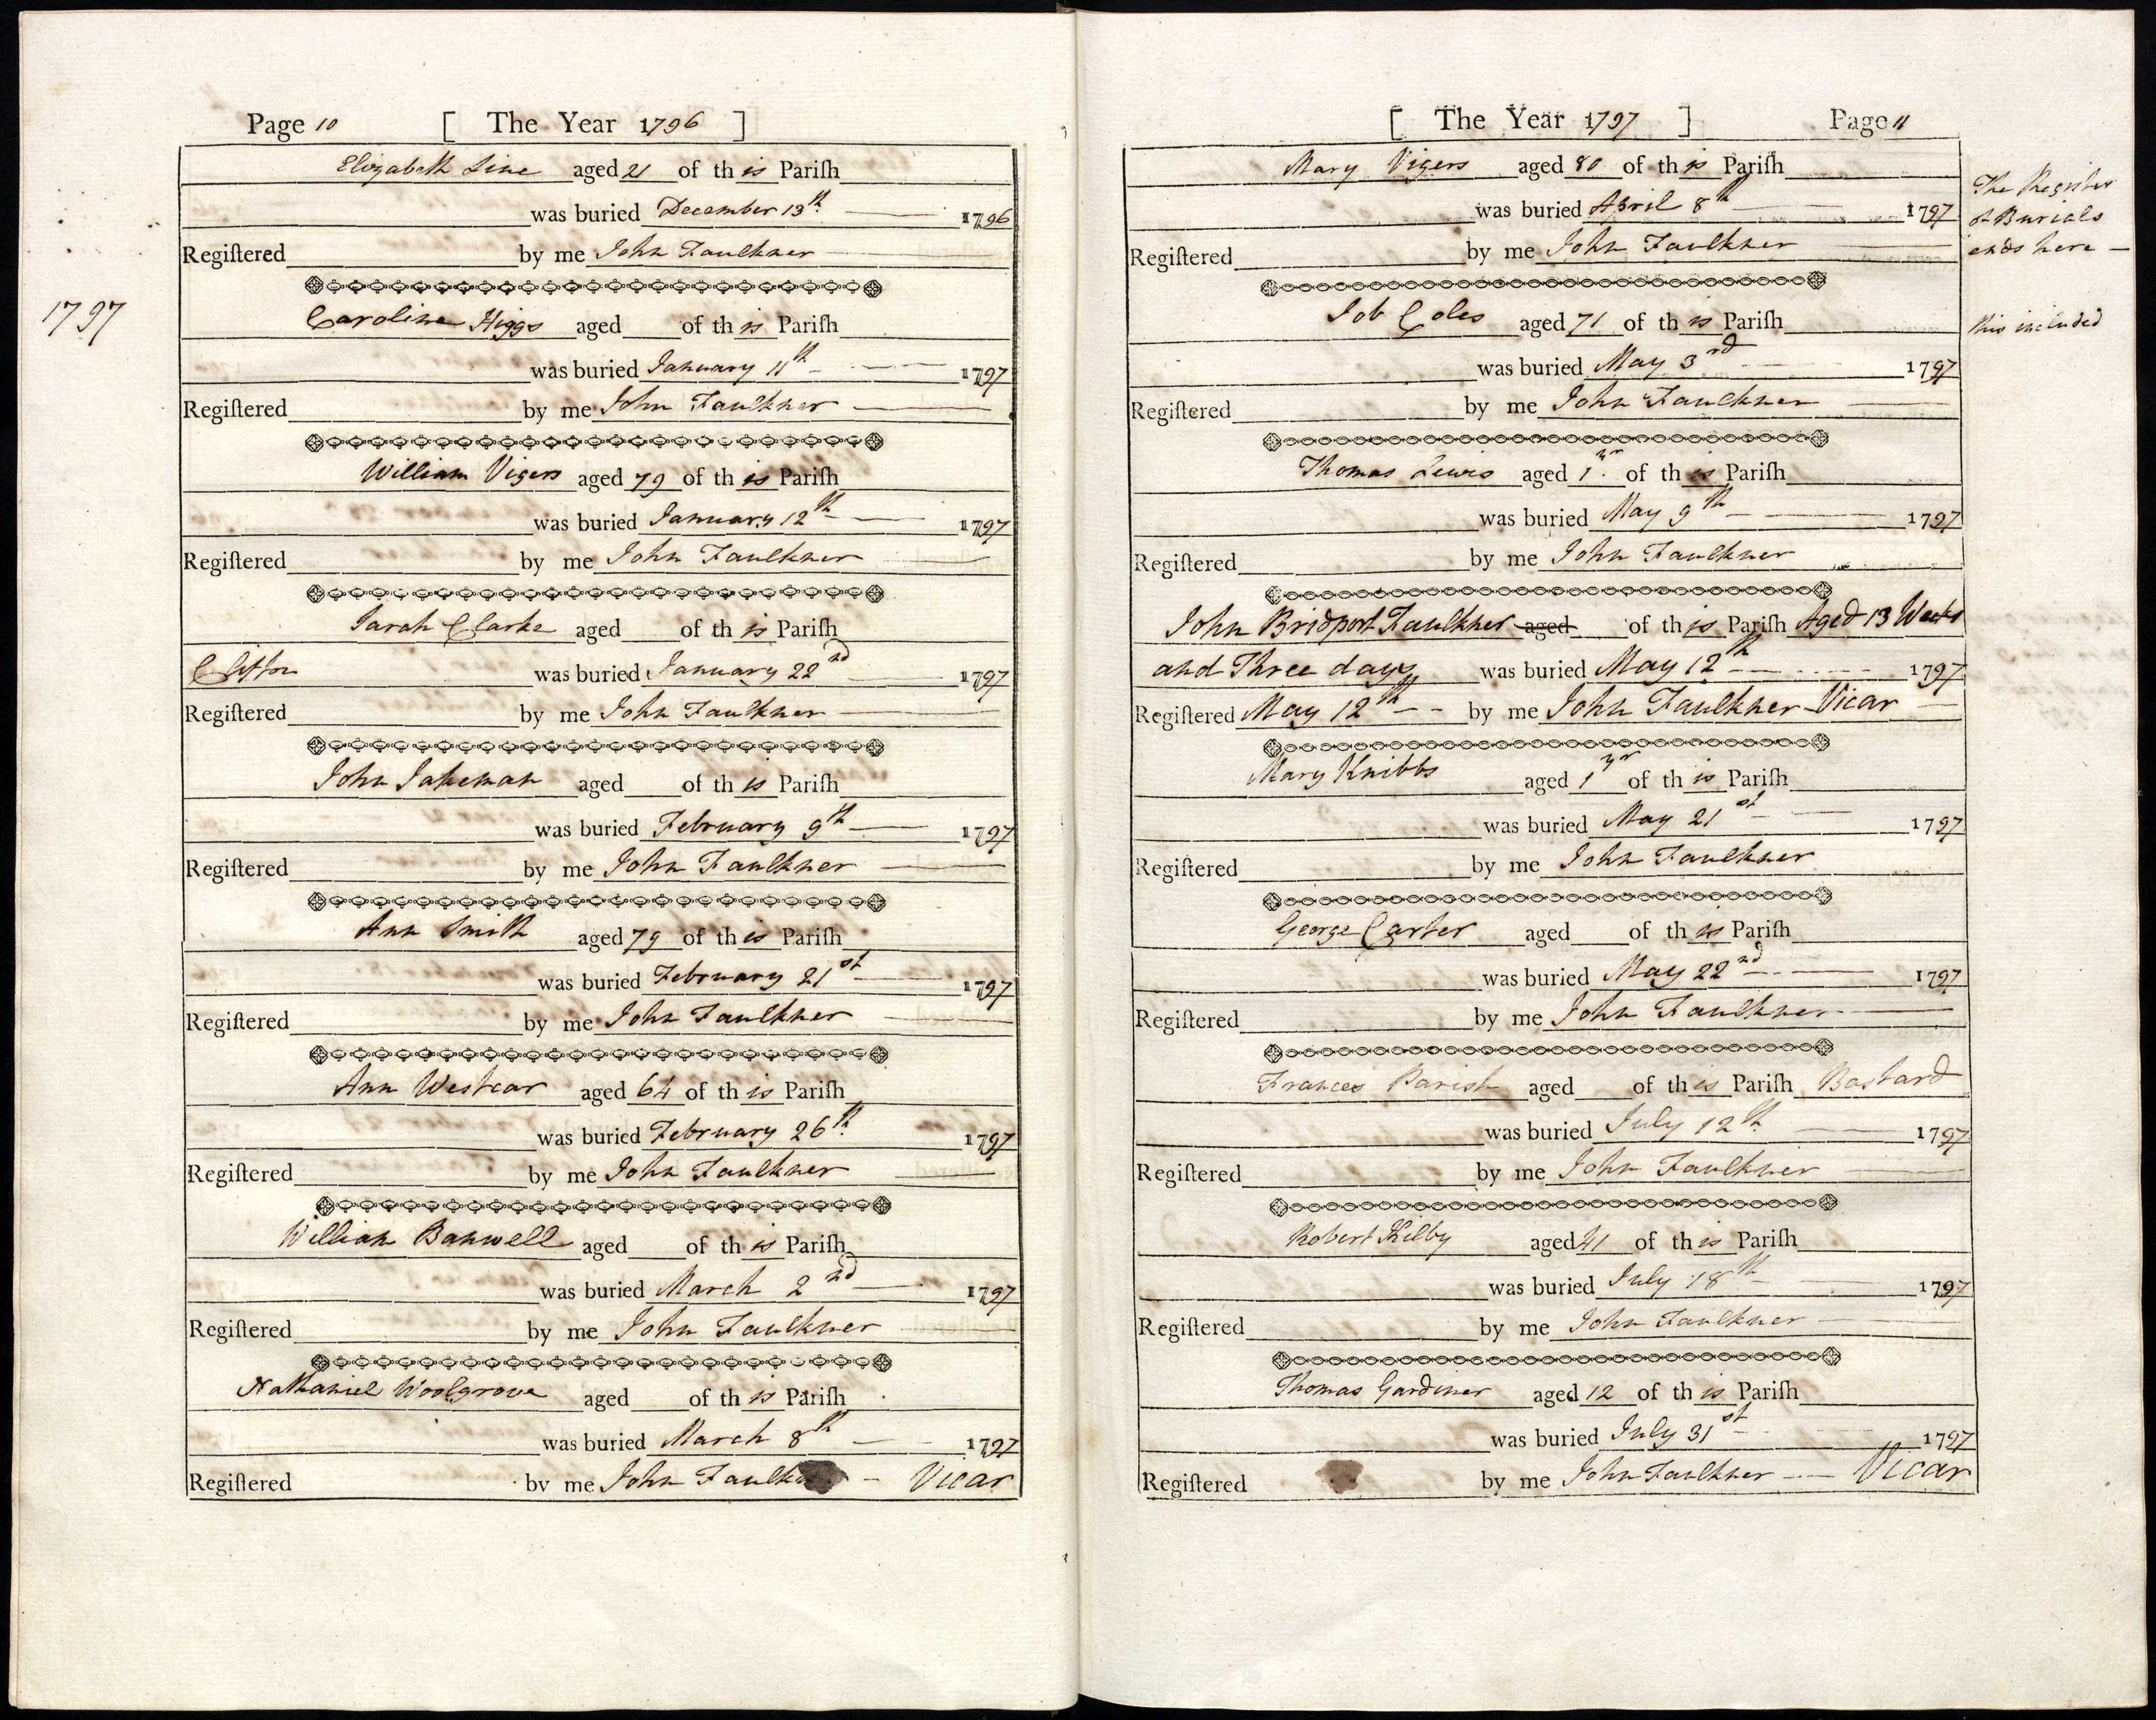 Page 10 [ The Year 1796 ]
Elizabeth Line aged 21 of this Pariſh
was buried December 13th. 1796
Regiſtered by me John Faulkner
1797
Caroline Higgs aged of this Pariſh
was buried January 11th 1797
Regiſtered by me John Faulkner
William Vigers aged 79 of this Pariſh
was buried January 12th 1797
Regiſtered by me John Faulkner
Sarah Clarke aged of this Pariſh
Clifton was buried January 22nd 1797
Regiſtered by me John Faulkner
John Jakeman aged of this Pariſh
was buried February 9th 1797
Regiſtered by me John Faulkner
Ann Smith aged 79 of this Pariſh
was buried February 21st 1797
Regiſtered by me John Faulkner
Ann Westcar aged 64 of this Pariſh
was buried February 26th. 1797
Regiſtered by me John Faulkner
William Banwell aged of this Pariſh
was buried March 2nd 1797
Regiſtered by me John Faulkner
Nathaniel Woolgrove aged of this Pariſh
was buried March 8th 1797
Regiſtered by me John Faulkner Vicar
[ The Year 1797 ] Page 11
Mary Vigers aged 80 of this Pariſh
was buried April 8th 1797
Regiſtered by me John Faulkner
The Register
of Burials
ends here
this included
Job Coles aged 71 of this Pariſh
was buried May 3rd 1797
Regiſtered by me John Faulkner
Thomas Lewis aged 1yr. of this Pariſh
was buried May 9th 1797
Regiſtered by me John Faulkner
John Bridport Faulkner aged of this Pariſh Aged 13 Weeks
and Three days was buried May 12th 1797
Regiſtered May 12th by me John Faulkner Vicar
Mary Knibbs aged 1yr of this Pariſh
was buried May 21st 1797
Regiſtered by me John Faulkner
George Carter aged of this Pariſh
was buried May 22nd 1797
Regiſtered by me John Faulkner
Frances Parish aged of this Pariſh Bastard
was buried July 12th 1797
Regiſtered by me John Faulkner
Robert Kilby aged 41 of this Pariſh
was buried July 18th 1797
Regiſtered by me John Faulkner
Thomas Gardiner aged 12 of this Pariſh
was buried July 31st 1797
Regiſtered by me John Faulkner Vicar